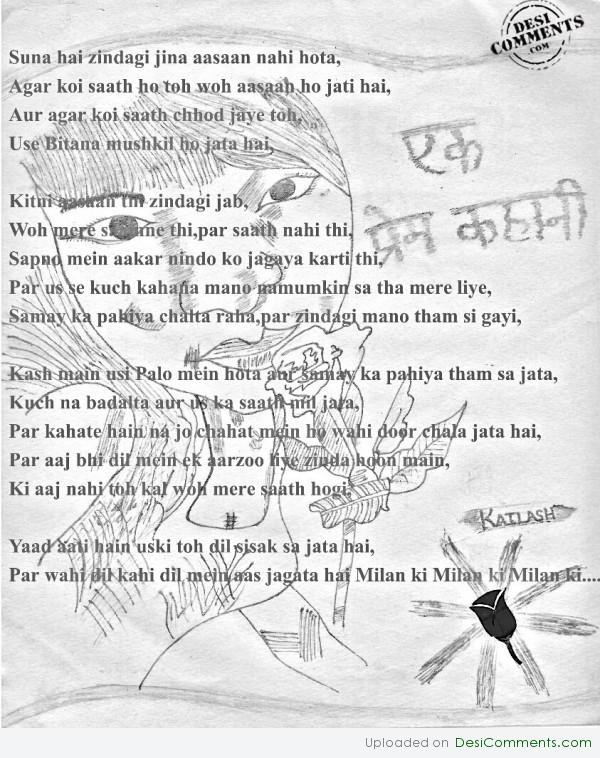 DESI
COMMENTS
.COM
Suna hai zindagi jina aasaan nahi hota,
Agar koi saath ho toh woh aasaan ho jati hai,
Aur agar koi saath chhod jaye toh,
Use Bitana mushkil ho jata hai,
एक
प्रेम कहानी
Kitni aasaan thi zindagi jab,
Woh mere samne thi,par saath nahi thi,
Sapno mein aakar nindo ko jagaya karti thi,
Par us se kuch kahana mano namumkin sa tha mere liye,
Samay ka pahiya chalta raha,par zindagi mano tham si gayi,
Kash main usi Palo mein hota aur samay ka pahiya tham sa jata,
Kuch na badalta aur us ka saath mil jata,
Par kahate hain na jo chahat mein ho wahi door chala jata hai,
Par aaj bhi dil mein ek aarzoo liye zinda hoon main,
Ki aaj nahi toh kal woh mere saath hogi,
KAILASH
Yaad aati hain uski toh dil sisak sa jata hai,
Par wahi dil kahi dil mein aas jagata hai Milan ki Milan ki Milan ki....
Uploaded on DesiComments.com